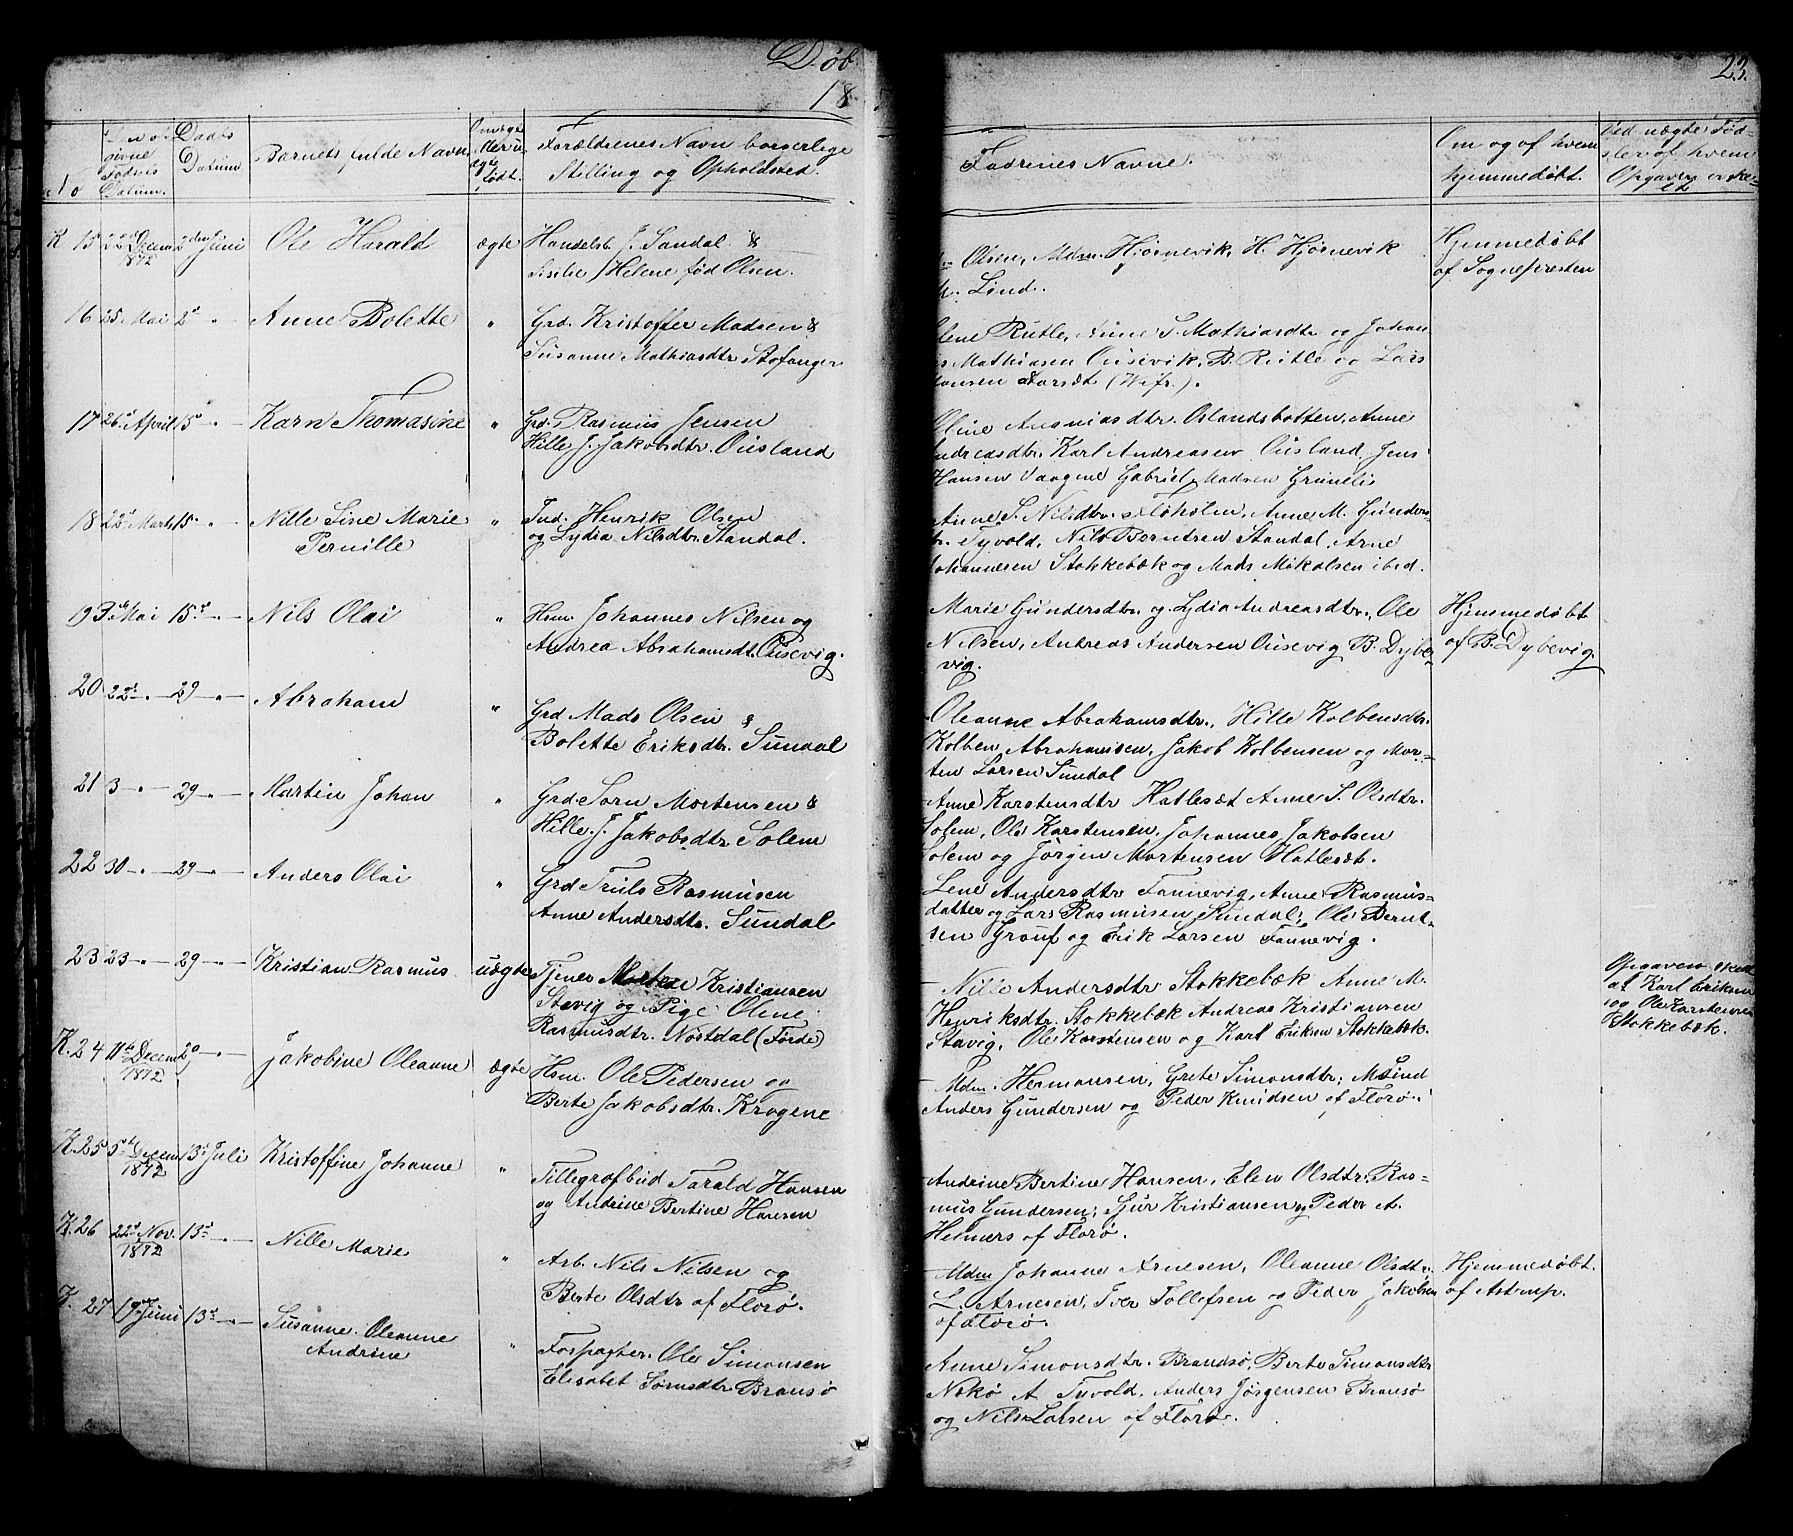 Døb
18
23.
No
givne
Fødsels
Datum.
Daabs
Datum
Barnets fulde Navn
Om ægte
eller u-
ægte
født.
Forældrenes Navn borgerlige
Stilling og Opholdssted.
Fadrenes Navne.
Om og af hvem
hjemmedøbt.
Ved uægte Fød-
sler af hvem
Opgaven er ske-
et
K 15 22nd Decem 1872 2den Juni Ole Harald ægte Handelsb. J. Sandal &
Sisilie Helene fød Olsen.
Olsen, Mdm. Hjøsnevik, H. Hjøsnevik
Lind.
Hjemmedøbt
af Sognepresten
16 25. Mai 2d -"- Anne Bolette " Grd. Kristoffer Madsen &
Susanne Mathiasdtr Stafanger
Rutle, Anne S. Mathiasdtr og Johan
Mathiasen Ousevik, B. Rutle og Lars
Hansen
17 26d April 15d -"- Karn Thomasine " Grd. Rasmus Jensen
Hille J. Jakobsdtr. Ousland
Oline Ananiasdtr. Oslandsbotten, Anne
Andreasdtr. Karl Andreasen Ousland, Jens
Hansen Vaagene Gabriel Madsen Grunelis
18 22d Marts 15. -"- Nille Sine Marie
Pernille
" Ind. Henrik Olsen
og Lydia Nilsdtr. Standal.
Anne S. Nilsdtr. Floholm, Anne M. Gunders
tr. Tyvold, Nils Berntsen Standal, Arne
Johannesen Stokkebæk og Mads Mikalsen ibid.
19 3die Mai 15d -"- Nils Olai " Hsm. Johannes Nilsen og
Andrea Abrahamsdt. Ousevig.
Marie Gundersdtr. og Lydia Andreasdtr., Ole
Nilsen, Andreas Andersen Ousevig B. Dybe-
vig.
Hjemmedøbt
af B. Dybevig.
20 22d -"- 29 -"- Abraham " Grd Mads Olsen &
Bolette Eriksdtr. Sundal
Oleanne Abrahamsdtr., Hille Kolbensdtr.
Kolben Abrahamsen, Jakob Kolbensen og Mor-
ten Larsen Sundal
21 3 -"- 29 -"- Martin Johan " Grd. Sørn Mortensen &
Hille J. Jakobsdtr Solem
Anne Karstensdtr Hatlesæt Anne S. Olsdtr.
Solem, Ole Karstensen, Johannes Jakobsen
Solem og Jørgen Mortensen Hatlesæt.
22 30 -"- 29 -"- Anders Olai " Grd Truls Rasmusen
Anne Andersdtr. Sundal
Lene Andersdtr Fannevig, Anne Rasmus-
datter og Lars Rasmusen Sundal, Ole Bernt-
sen Grouf og Erik Larsen Fannevig.
23 23 -"- 29 -"- Kristian Rasmus uægte Tjener Kristiansen
Stavig og Pige Oline
Rasmusdtr. Nøstdal (Førde)
Nille Andersdtr Stokkebæk Anne M.
Henriksdtr. Stokkebæk Andreas Kristiansen
Stavig, Ole Karstensen og Karl Eriksen Stokkebæk.
Opgaven skeet
af Karl Eriksen
og Ole Karstensen
Stokkebæk.
K. 24 11te Decem 1872 29 -"- Jakobine Oleanne ægte Hsm. Ole Pedersen og
Berte Jakobsdtr. Krogene
Mdm. Hermansen, Grete Simonsdtr; M Lind
Anders Gundersen og Peder Knudsen af Florø.
K. 25 5te Decem 1872 13d Juli Kristoffine Johanne " Tillegrafbud Tarald Hansen
og Andrine Bertine Hansen
Andrine Bertine Hansen, Elen Olsdtr. Ras-
mus Gundersen, Gjur Kristiansen og Peder A.
Helmers af Florø.
K. 26 22d Nov. 1872 13d -"- Nille Marie " Arb. Nils Nilsen og
Berte Olsdtr af Florø.
Mdm Johanne Arnesen, Oleanne Olsdtr.
L. Arnesen, Iver Tollefsen og Peder Jakobsen
af Florø.
Hjemmedøbt.
af Astrup.
K. 27 19de Juni 13d -"- Susanne Oleanne
Andrine
" Forpagter. Ole Simonsen
Elisabet Sørnsdtr Bransø
Anne Simonsdtr. Brandsø, Berte Simonsdtr
Nekø A Tuvold, Anders Jørgensen Bransø
og Nils Larsen af Florø.